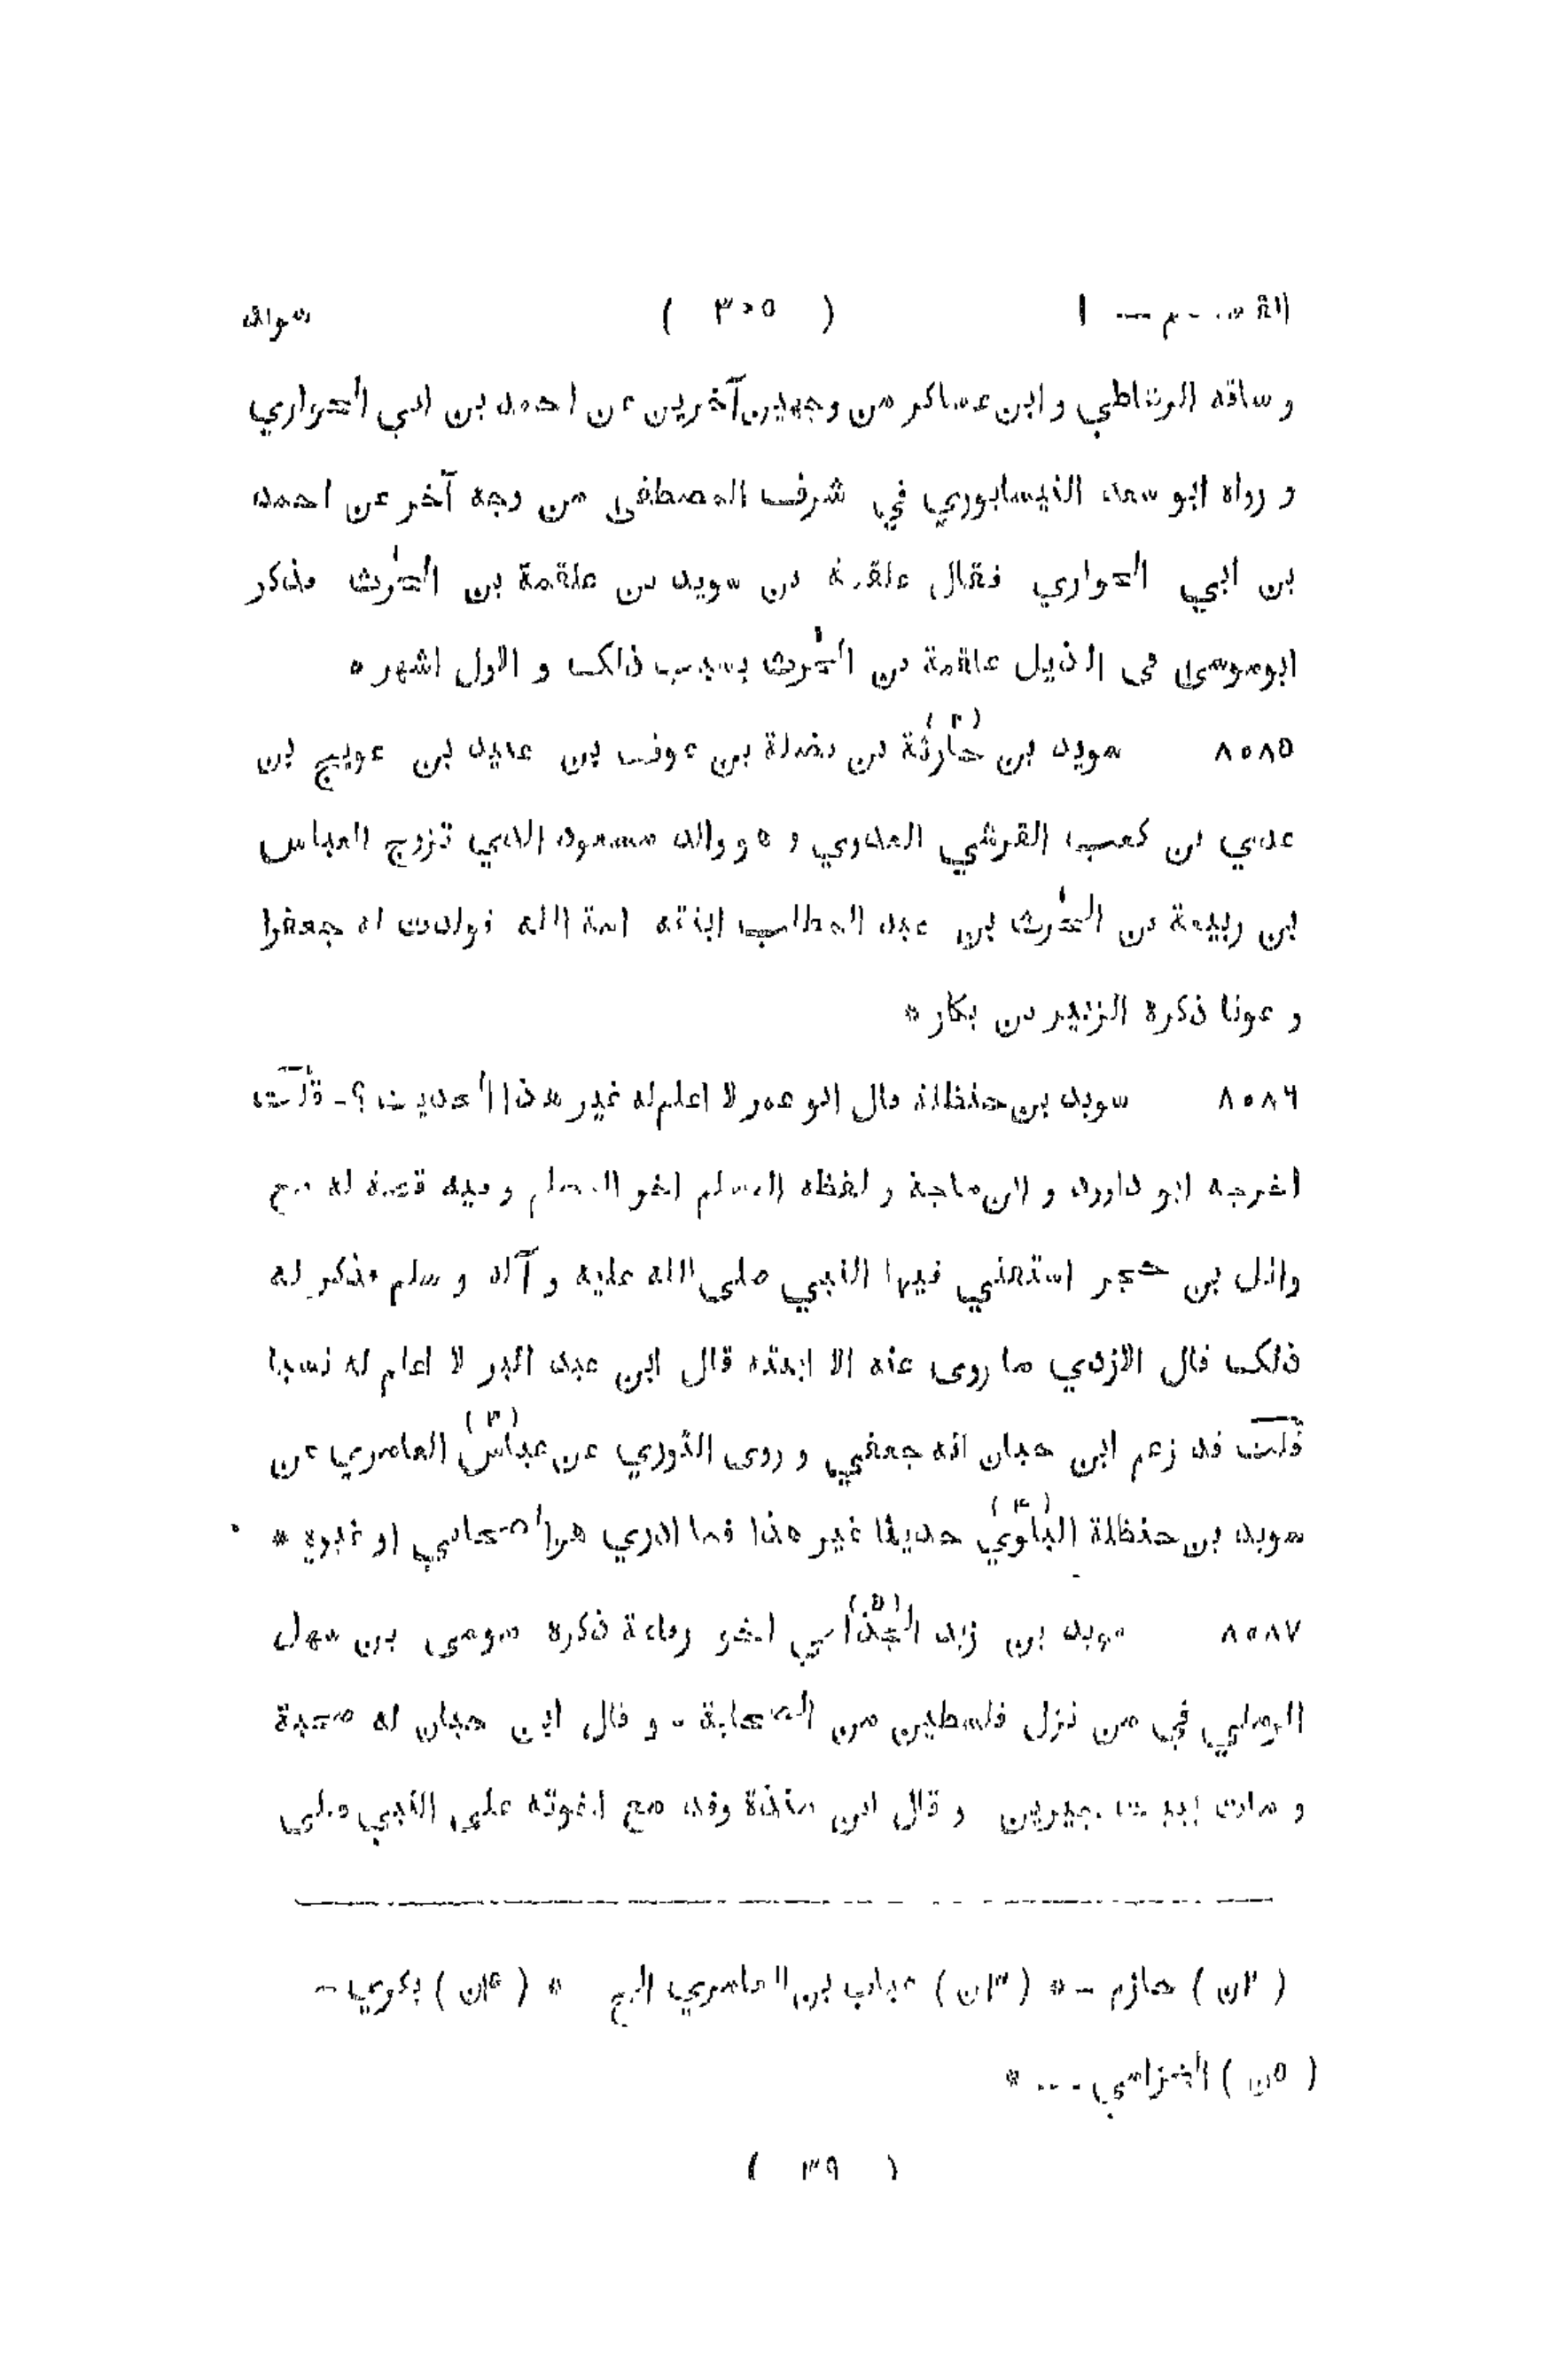 القسم ا ( ٣٠٥ ) سواله
و ساقه الرشاطي و ابن عساكر من وجهين آخرين عن احمد بن ابي الحواري
و رواه ابو سعد النيسابوري في شرف المصطفى من وجه آخر عن احمد
بن ابي الحواري فقال علقمة بن سويد بن علقمة بن الحٰرث فذكر
ابوموسى في الذيل علقمة بن الحٰرث بسبب ذلك و الاول اشهر *
٨٥٨٥ سويد بن حارثة (٢) بن نضلة بن عوف بن عبيد بن عويج بن
عدي بن كعب القرشي العدوي و هو والد مسعود الذي تزوج العباس
بن ربيعة بن الحٰرث بن عبد المطلب ابنته امة الله فولدت له جعفرا
و عونا ذكره الزبير بن بكار *
٨٥٨٦ سويد بن حنظلة قال ابو عمر لا اعلم له غير هذا الحديث ؟ - قلت
اخرجه ابو داوود و ابن ماجة و لفظه المسلم اخو المسلم و فيه قصة له مع
وائل بن حجر استفتي فيها النبي صلى الله عليه و آله و سلم فذكر له
ذلك قال الازدي ما روى عنه الا ابنته قال ابن عبد البر لا اعلم له نسبا
قلت قد زعم ابن حبان انه جعفي و روى الثوري عن عباس (٣) العامري عن
سويد بن حنظلة البلوي (٤) حديثا غير هذا فما ادري هو الصحابي او غيره *
٨٥٨٧ سويد بن زيد الجذامي (٥) اخو رفاعة ذكره موسى بن سهل
الرملي في من نزل فلسطين من الصحابة - و قال ابن حبان له صحبة
و مات ببيت جبرين و قال ابن منذة وفد مع اخوته على النبي صلى
( ٢ن ) حازم - * ( ٣ن ) عباب بن العامري الخ * ( ٤ن ) بكري -
( ٥ن ) الخزامي - *
( ٣٩ )